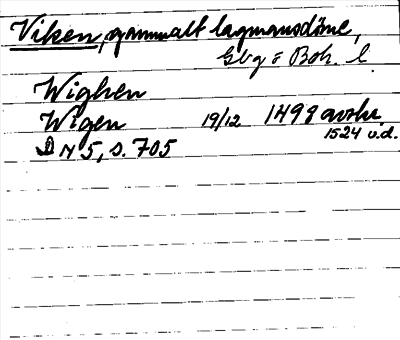 Viken, gammalt lagmansdöme,
Gbg o Boh. l
Wighen
Wigen 19/12 1499 avskr.
1524 v.d.
DN 5, s. 705